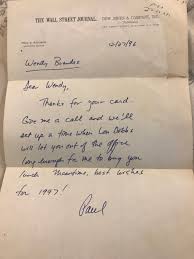 THE WALL STREET JOURNAL.
DOW JONES & COMPANY, INC.
12/27/96
Wendy
Dear Wendy,
Thanks for your card.
Give me a call and we'll
set up a time when Lou Dobbs
will let you out of the office
long enough for me to buy you
lunch. Meantime, best wishes
for 1997!
Paul